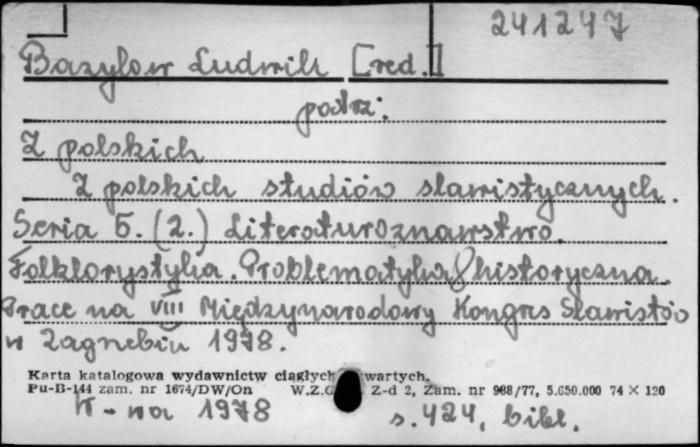 241247
Bazylow Ludwik [red.]
patrz:
Z polskich
Z polskich studiów slawistycznych.
Seria 5. (2.) Literaturoznawstwo.
Folklorystyka. Problematyka historyczna.
Prace na VIII Międzynarodowy Kongres Slawistów
w Zagrzebiu 1978.
Karta katalogowa wydawnictw ciągłych wartych.
Pu-B-144 zam. nr 1674/DW/On W.Z.G Z-d 2, Zam. nr 988/77, 5.650.000 74 × 120
W-wa 1978
s. 424, bibl.